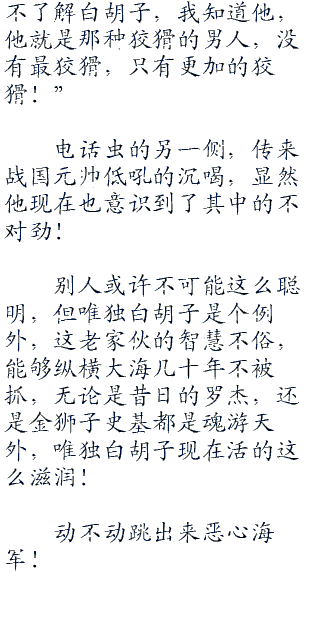 不了解白胡子，我知道他，
他就是那种狡猾的男人，没
有最狡猾，只有更加的狡
猾！”
电话虫的另一侧，传来
战国元帅低吼的沉喝，显然
他现在也意识到了其中的不
对劲！
别人或许不可能这么聪
明，但唯独白胡子是个例
外，这老家伙的智慧不俗，
能够纵横大海几十年不被
抓，无论是昔日的罗杰，还
是金狮子史基都是魂游天
外，唯独白胡子现在活的这
么滋润！
动不动跳出来恶心海
军！